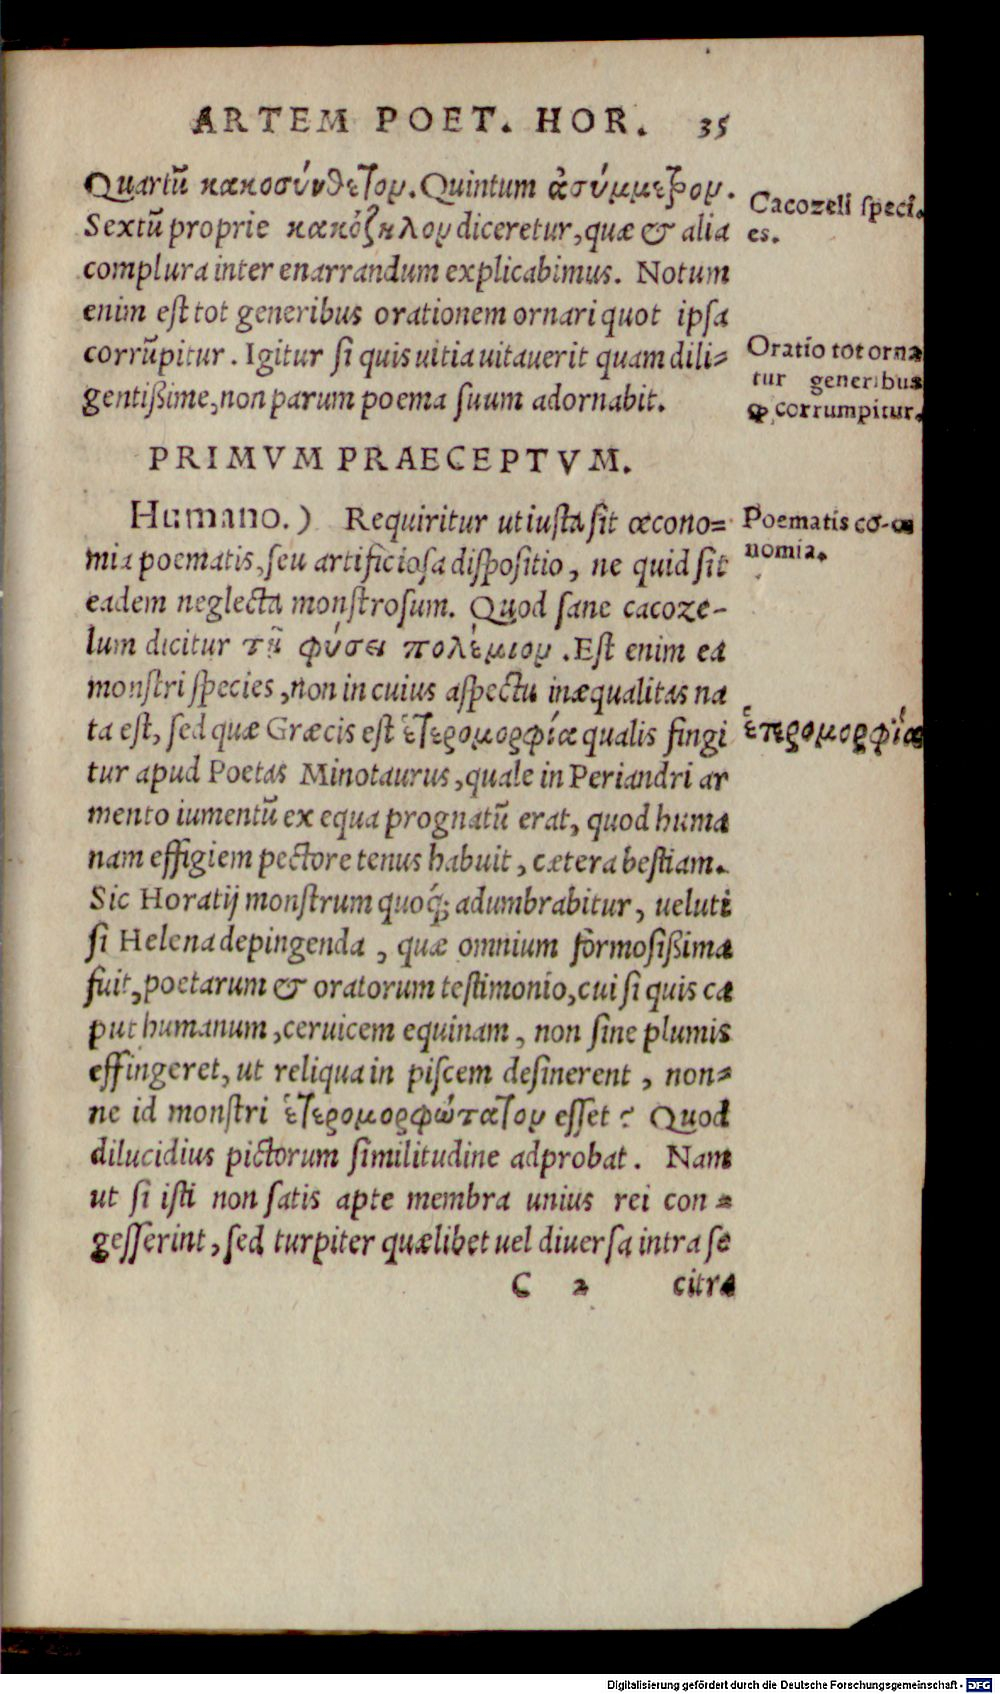 ARTEM POET. HOR. 35
Quartũ κακοσύνθετον. Quintum ἀσύμμετρον.
Sextũ proprie κακόζηλον diceretur, quæ & alia
complura inter enarrandum explicabimus. Notum
enim est tot generibus orationem ornari quot ipsa
corrũpitur. Igitur si quis uitia uitauerit quam dili=
gentißime, non parum poema suum adornabit.
Cacozeli speci
es.
Oratio tot orna
tur generibus
ꝙ corrumpitur.
PRIMVM PRAECEPTVM.
Humano.) Requiritur ut iusta sit œcono=
mia poematis, seu artificiosa dispositio, ne quid sit
eadem neglecta monstrosum. Quod sane cacoze-
lum dicitur τῇ φύσει πολέμιον. Est enim ea
monstri species, non in cuius aspectu inæqualitas na
ta est, sed quæ Græcis est ἑτερομορφία qualis fingi
tur apud Poetas Minotaurus, quale in Periandri ar
mento iumentũ ex equa prognatũ erat, quod huma
nam effigiem pectore tenus habuit, cætera bestiam.
Sic Horatij monstrum quoq́; adumbrabitur, ueluti
si Helena depingenda, quæ omnium formosißima
fuit, poetarum & oratorum testimonio, cui si quis ca
put humanum, ceruicem equinam, non sine plumis
effingeret, ut reliqua in piscem desinerent, non=
ne id monstri ἑτερομορφώτατον esset? Quod
dilucidius pictorum similitudine adprobat. Nam
ut si isti non satis apte membra unius rei con=
gesserint, sed turpiter quælibet uel diuersa intra se
Poematis
nomia.
ἑτερομορφία
C 2 citra
Digitalisierung gefördert durch die Deutsche Forschungsgemeinschaft - DFG